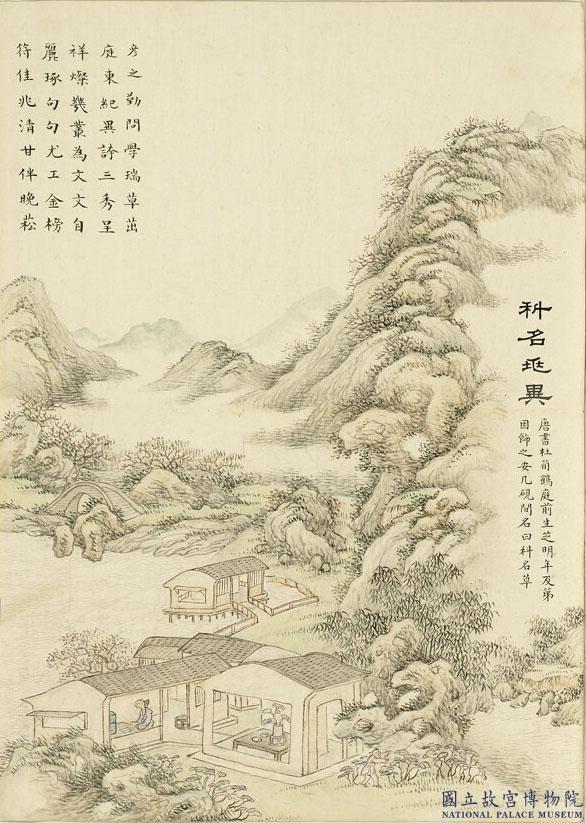 科名世異
唐書杜荀鶴庭前生芝明年及第
因飾之安几硯間名曰科名草
彦之勤問學瑞草茁
庭東紀異誇三秀呈
祥燦叢為文文自
麗琢句句尤工金榜
符佳兆清甘伴晚菘
國立故宮博物院
NATIONAL PALACE MUSEUM